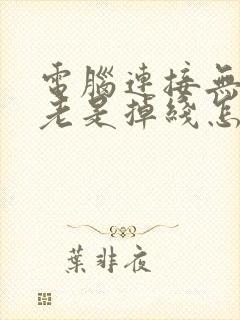 電腦連接無
老是掉綫怎
葉非夜